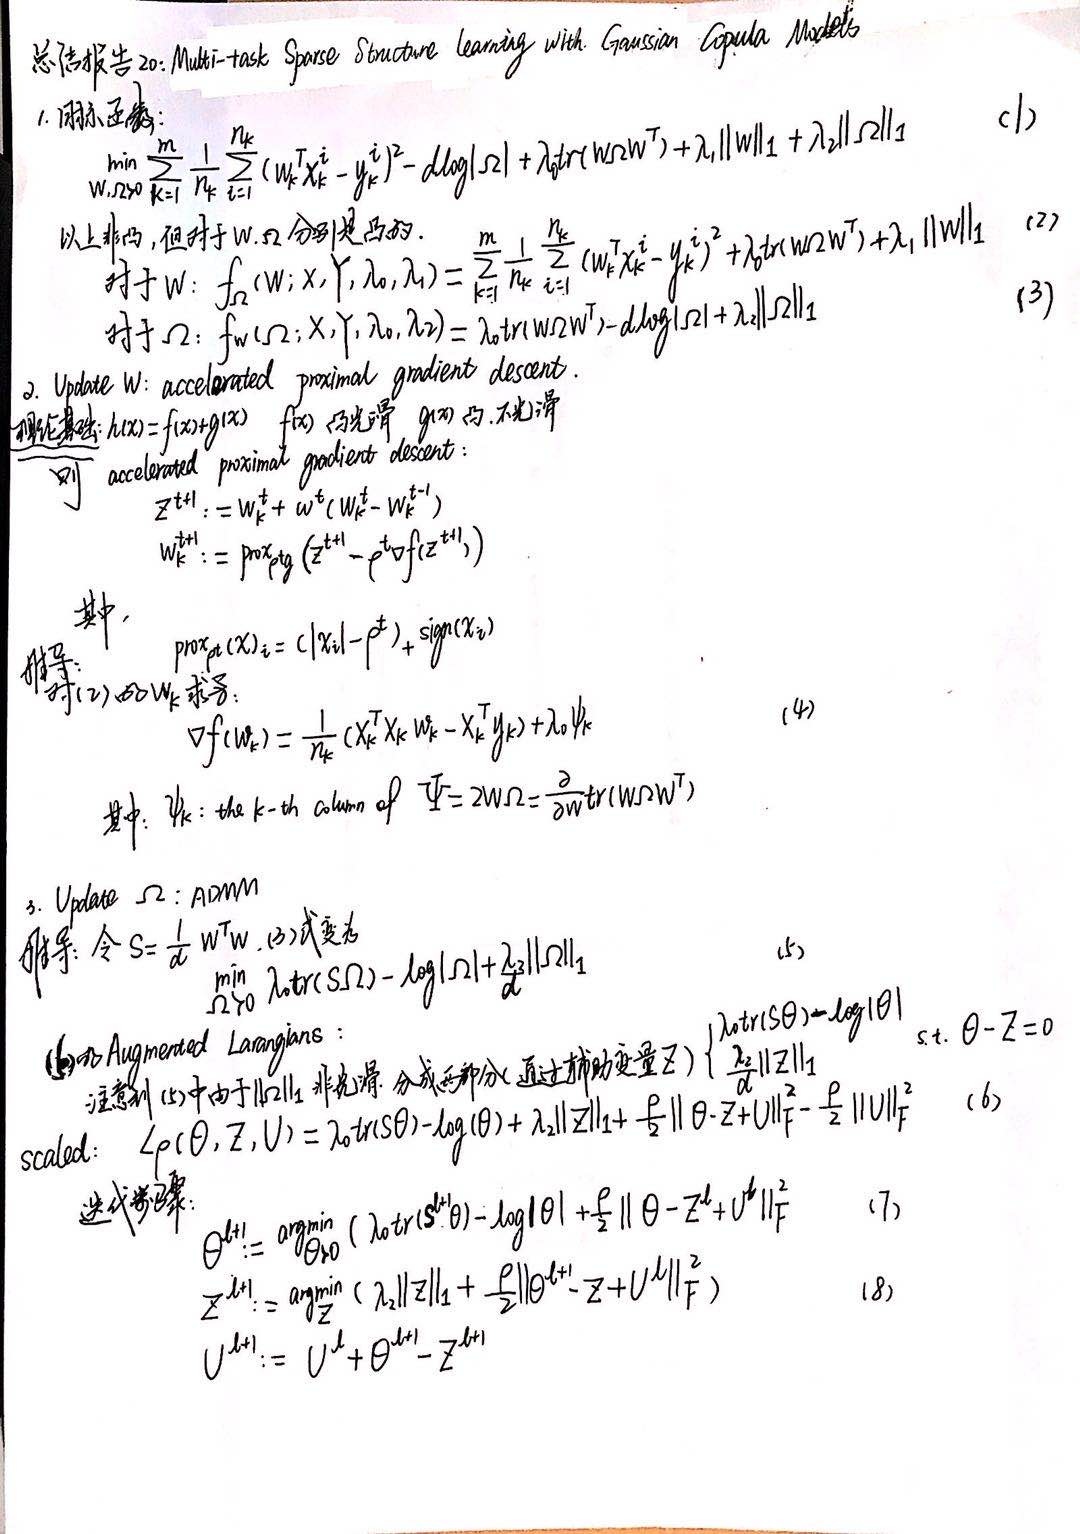 总结报告20: Multi-task Sparse Structure Learning with Gaussian Copula Models
1. 目标函数:
min_{W,Ω≻0} Σ_{k=1}^{m} 1/n_k Σ_{i=1}^{n_k} (w_k^T x_k^i - y_k^i)^2 - d log|Ω| + λ_0 tr(WΩW^T) + λ_1||W||_1 + λ_2||Ω||_1 (1)
以上非凸, 但对于W.Ω分别是凸的.
对于W: f_Ω(W; X, Y, λ_0, λ_1) = Σ_{k=1}^{m} 1/n_k Σ_{i=1}^{n_k} (w_k^T x_k^i - y_k^i)^2 + λ_0 tr(WΩW^T) + λ_1||W||_1 (2)
对于Ω: f_W(Ω; X, Y, λ_0, λ_2) = λ_0 tr(WΩW^T) - d log|Ω| + λ_2||Ω||_1 (3)
2. Update W: accelerated proximal gradient descent.
理论基础: h(x) = f(x)+g(x) f(x) 凸光滑 g(x) 凸.不光滑
则 accelerated proximal gradient descent:
z^{t+1} := w_k^t + ω^t (w_k^t - w_k^{t-1})
w_k^{t+1} := prox_{ρ^t g} (z^{t+1} - ρ^t ∇f(z^{t+1}))
其中,
prox_{ρ^t}(x)_i = (|x_i| - ρ^t)_+ sign(x_i)
推导:
对(2)的W_k求导:
∇f(w_k) = 1/n_k (X_k^T X_k w_k - X_k^T y_k) + λ_0 ψ_k (4)
其中: ψ_k: the k-th column of Ψ = 2WΩ = ∂/∂W tr(WΩW^T)
3. Update Ω: ADMM
推导: 令 S = 1/d W^T W .(3)式变为
min_{Ω≻0} λ_0 tr(SΩ) - log|Ω| + λ_2/d ||Ω||_1 (5)
(5)的Augmented Larangians:
注意到(5)中由于||Ω||_1 非光滑. 分成两部分(通过辅助变量Z) { λ_0 tr(Sθ) - log|θ| λ_2/d ||Z||_1 s.t. θ-Z=0
scaled: L_ρ(θ, Z, U) = λ_0 tr(Sθ) - log(θ) + λ_2||Z||_1 + ρ/2 ||θ-Z+U||_F^2 - ρ/2 ||U||_F^2 (6)
迭代步骤:
θ^{l+1} := argmin_{θ≻0} (λ_0 tr(S^{l+1}θ) - log|θ| + ρ/2 ||θ - Z^l + U^l||_F^2 (7)
Z^{l+1} := argmin_Z (λ_2||Z||_1 + ρ/2 ||θ^{l+1} - Z + U^l||_F^2) (8)
U^{l+1} := U^l + θ^{l+1} - Z^{l+1}